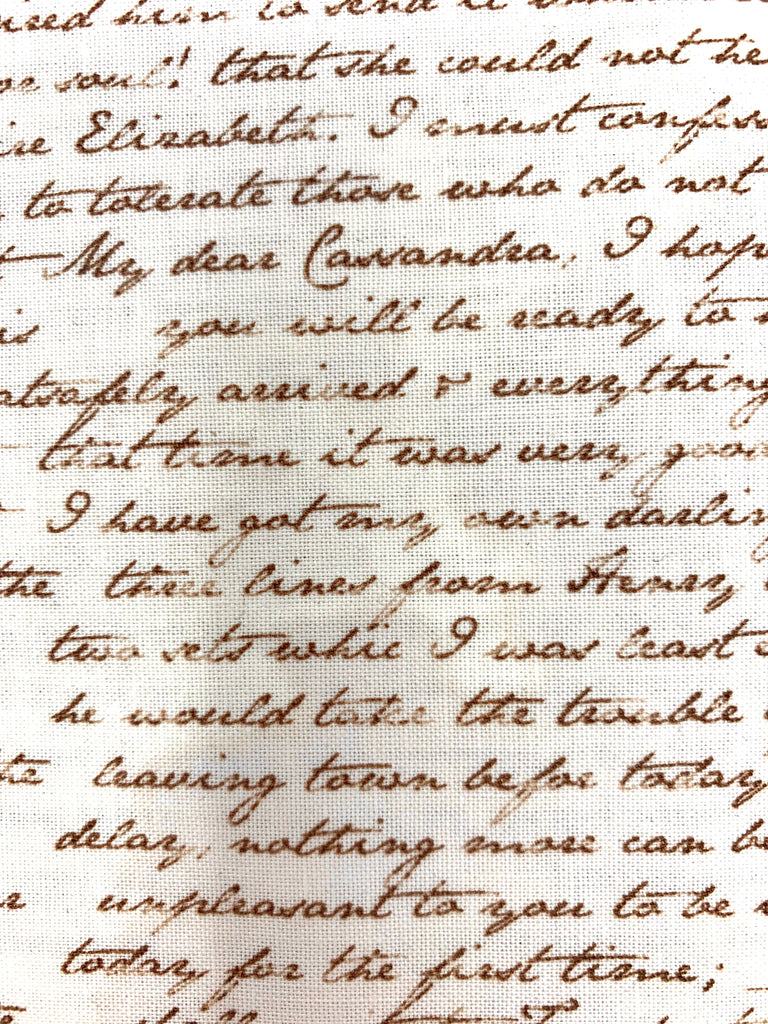 him to send it
soul! that she could not he
ire Elizabeth. I must confess
to tolerate those who do not
t My dear Cassandra, I hop
is you will be ready to
atsafely arrived & everything
that time it was very good
I have got my own darlin
the three lines from Henry
two sets whic I was least
he would take the trouble
the leaving town befor today
delay, nothing more can be
r unpleasant to you to be
today for the first time;